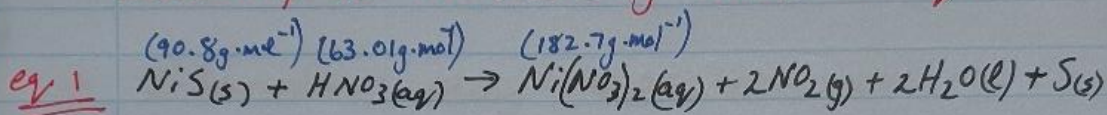 (90.8g.mol⁻¹) (63.01g.mol) (182.7g.mol⁻¹)
eq 1 NiS(s) + HNO₃(aq) → Ni(NO₃)₂(aq) + 2NO₂(g) + 2H₂O(l) + S(s)